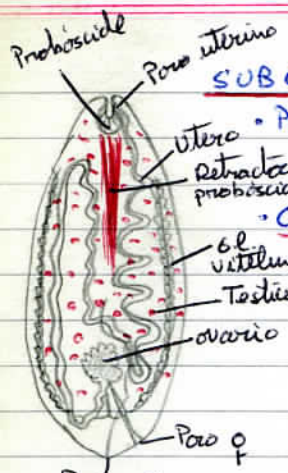 Probóscide
Poro uterino
SUB
Utero
Retracto
probóscid
Gl
vitelin
Testíc
ovario
Poro ♀